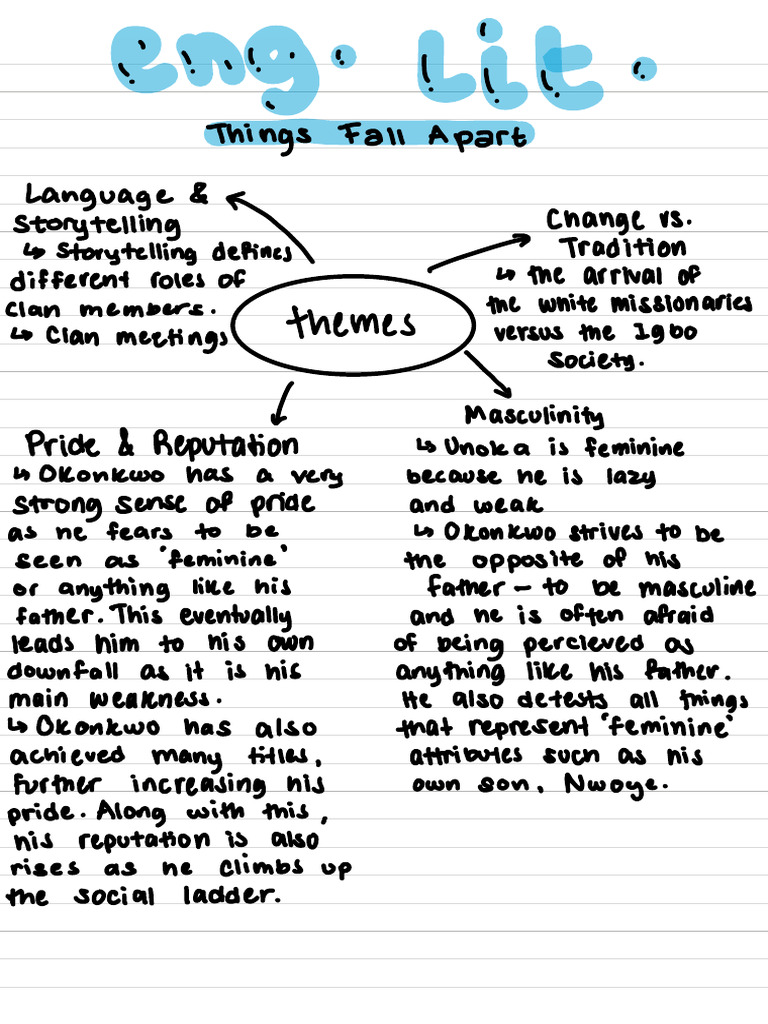 eng. Lit.
Things Fall Apart
Language &
Storytelling
↳ Storytelling defines
different roles of
clan members.
↳ Clan meetings
Change vs.
Tradition
↳ the arrival of
the white missionaries
versus the Igbo
society.
themes
Pride & Reputation
↳ Okonkwo has a very
strong sense of pride
as he fears to be
seen as 'feminine'
or anything like his
father. This eventually
leads him to his own
downfall as it is his
main weakness.
↳ Okonkwo has also
achieved many titles,
further increasing his
pride. Along with this,
his reputation is also
rises as he climbs up
the social ladder.
Masculinity
↳ Unoka is feminine
because he is lazy
and weak
↳ Okonkwo strives to be
the opposite of his
father – to be masculine
and he is often afraid
of being percieved as
anything like his father.
He also detests all things
that represent 'feminine'
attributes such as his
own son, Nwoye.